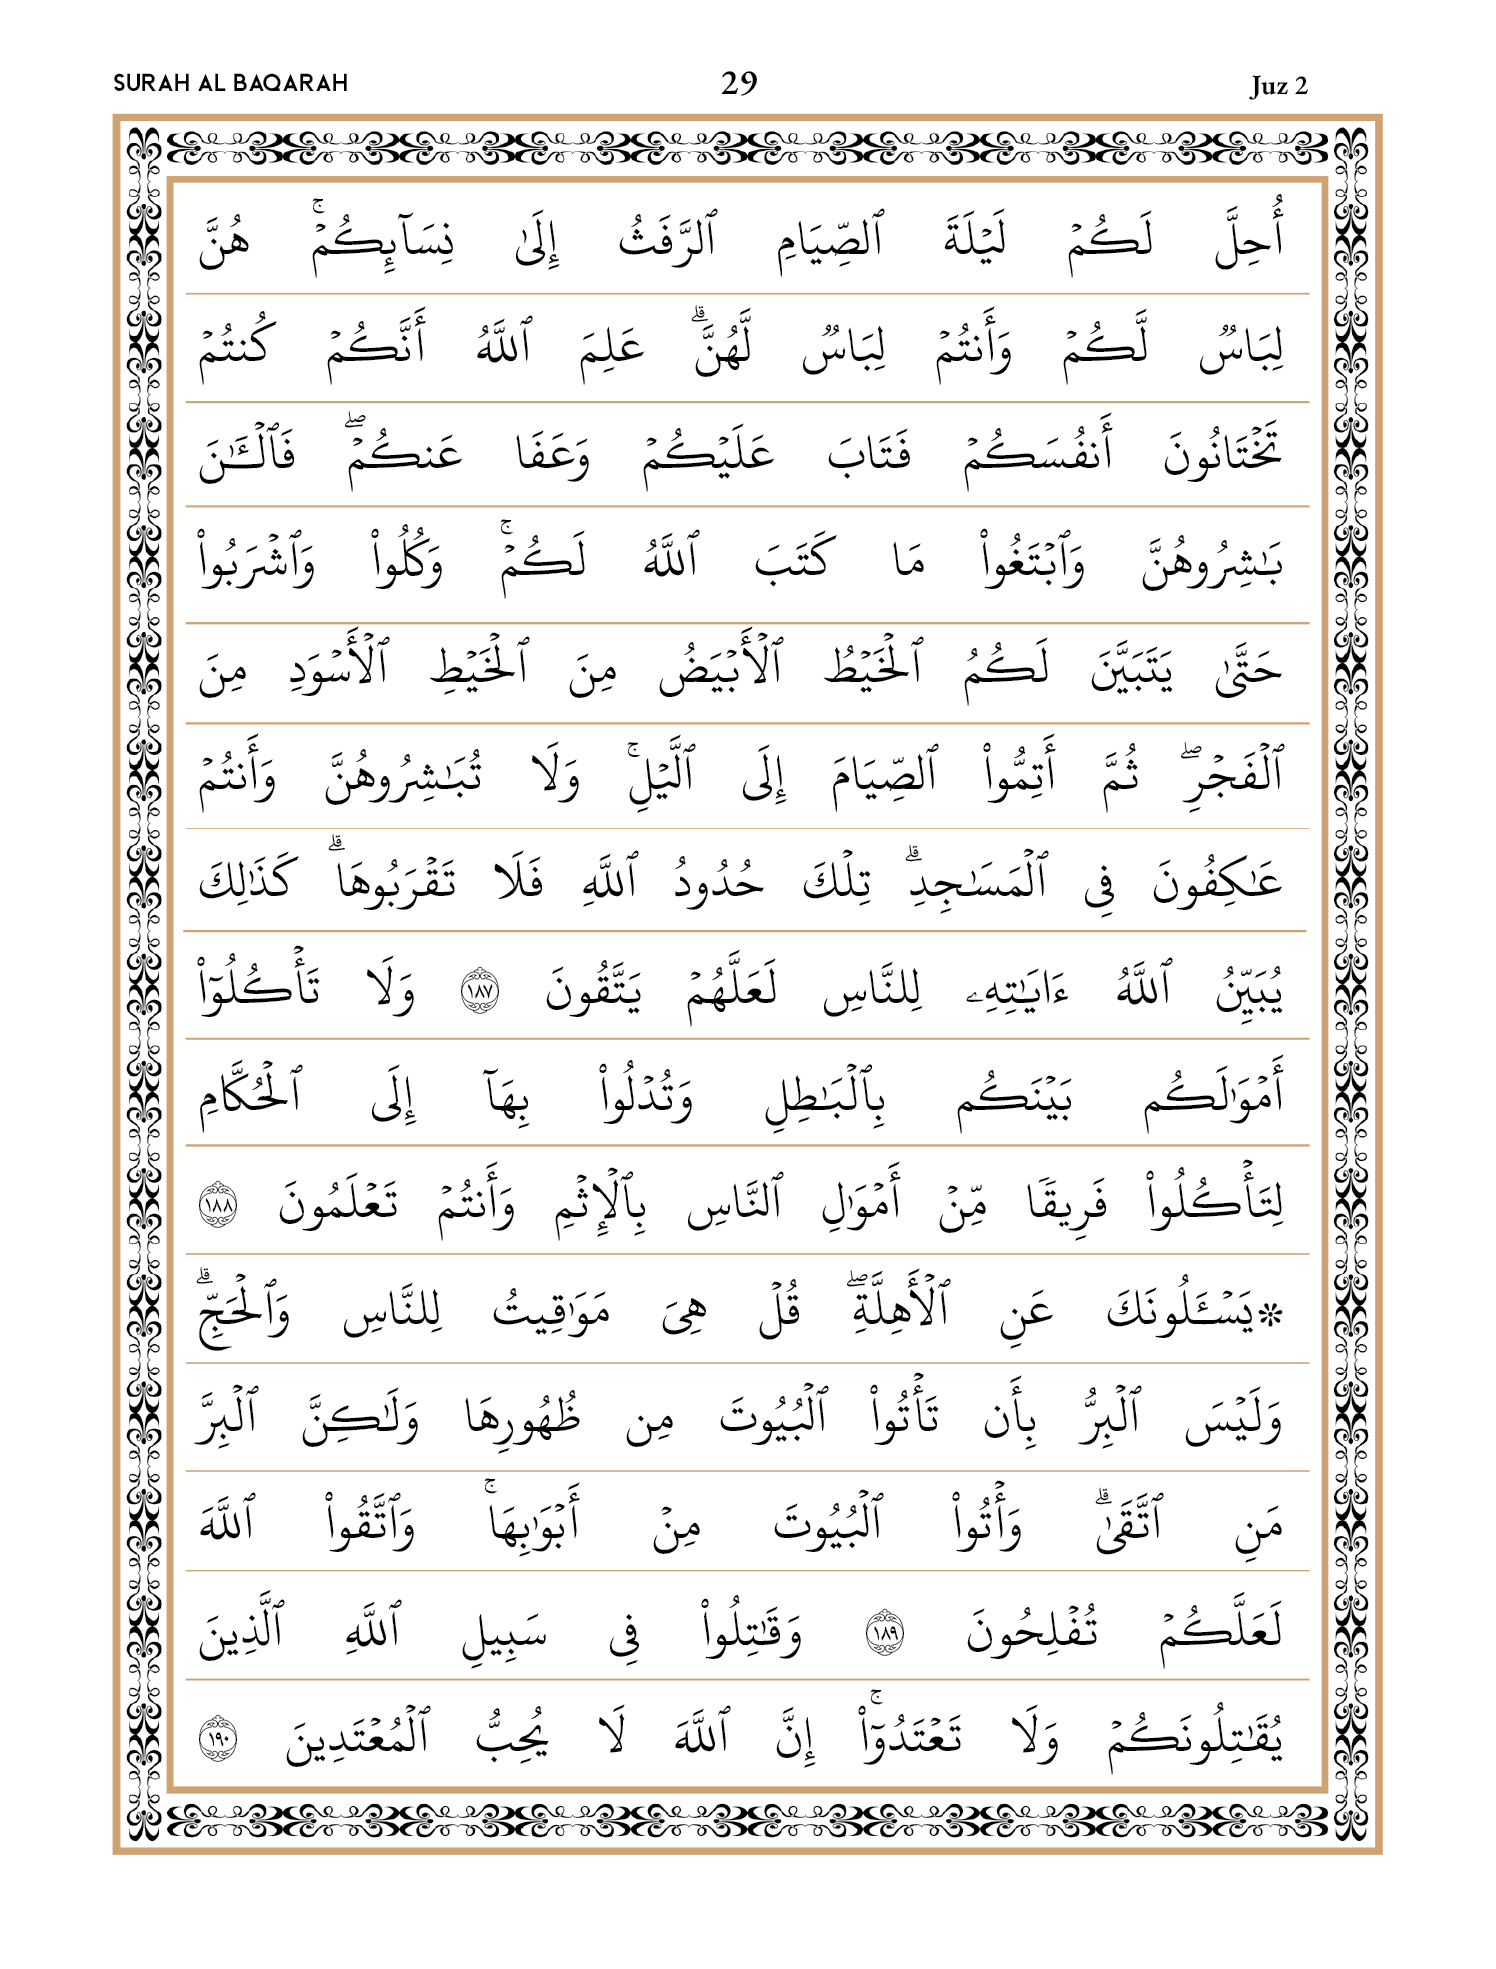 SURAH AL BAQARAH 29 Juz 2
أُحِلَّ لَكُمْ لَيْلَةَ ٱلصِّيَامِ ٱلرَّفَثُ إِلَىٰ نِسَآئِكُمْۚ هُنَّ
لِبَاسٌ لَّكُمْ وَأَنتُمْ لِبَاسٌ لَّهُنَّۗ عَلِمَ ٱللَّهُ أَنَّكُمْ كُنتُمْ
تَخْتَانُونَ أَنفُسَكُمْ فَتَابَ عَلَيْكُمْ وَعَفَا عَنكُمْۖ فَٱلْـَٰٔنَ
بَـٰشِرُوهُنَّ وَٱبْتَغُوا۟ مَا كَتَبَ ٱللَّهُ لَكُمْۚ وَكُلُوا۟ وَٱشْرَبُوا۟
حَتَّىٰ يَتَبَيَّنَ لَكُمُ ٱلْخَيْطُ ٱلْأَبْيَضُ مِنَ ٱلْخَيْطِ ٱلْأَسْوَدِ مِنَ
ٱلْفَجْرِۖ ثُمَّ أَتِمُّوا۟ ٱلصِّيَامَ إِلَى ٱلَّيْلِۚ وَلَا تُبَـٰشِرُوهُنَّ وَأَنتُمْ
عَـٰكِفُونَ فِى ٱلْمَسَـٰجِدِۗ تِلْكَ حُدُودُ ٱللَّهِ فَلَا تَقْرَبُوهَاۗ كَذَٰلِكَ
يُبَيِّنُ ٱللَّهُ ءَايَـٰتِهِۦ لِلنَّاسِ لَعَلَّهُمْ يَتَّقُونَ ١٨٧ وَلَا تَأْكُلُوٓا۟
أَمْوَٰلَكُم بَيْنَكُم بِٱلْبَـٰطِلِ وَتُدْلُوا۟ بِهَآ إِلَى ٱلْحُكَّامِ
لِتَأْكُلُوا۟ فَرِيقًا مِّنْ أَمْوَٰلِ ٱلنَّاسِ بِٱلْإِثْمِ وَأَنتُمْ تَعْلَمُونَ ١٨٨
۞يَسْـَٔلُونَكَ عَنِ ٱلْأَهِلَّةِۖ قُلْ هِىَ مَوَٰقِيتُ لِلنَّاسِ وَٱلْحَجِّۗ
وَلَيْسَ ٱلْبِرُّ بِأَن تَأْتُوا۟ ٱلْبُيُوتَ مِن ظُهُورِهَا وَلَـٰكِنَّ ٱلْبِرَّ
مَنِ ٱتَّقَىٰۗ وَأْتُوا۟ ٱلْبُيُوتَ مِنْ أَبْوَٰبِهَاۚ وَٱتَّقُوا۟ ٱللَّهَ
لَعَلَّكُمْ تُفْلِحُونَ ١٨٩ وَقَـٰتِلُوا۟ فِى سَبِيلِ ٱللَّهِ ٱلَّذِينَ
يُقَـٰتِلُونَكُمْ وَلَا تَعْتَدُوٓا۟ۚ إِنَّ ٱللَّهَ لَا يُحِبُّ ٱلْمُعْتَدِينَ ١٩٠